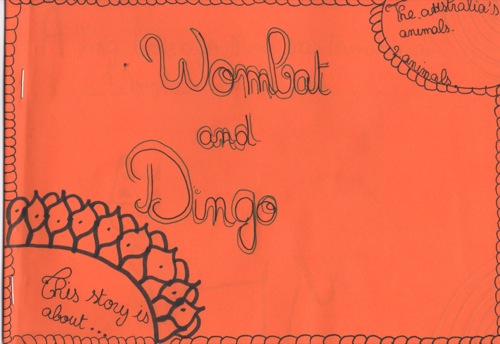 The australia's
animals.
animals.
Wombat
and
Dingo
This story is
about....